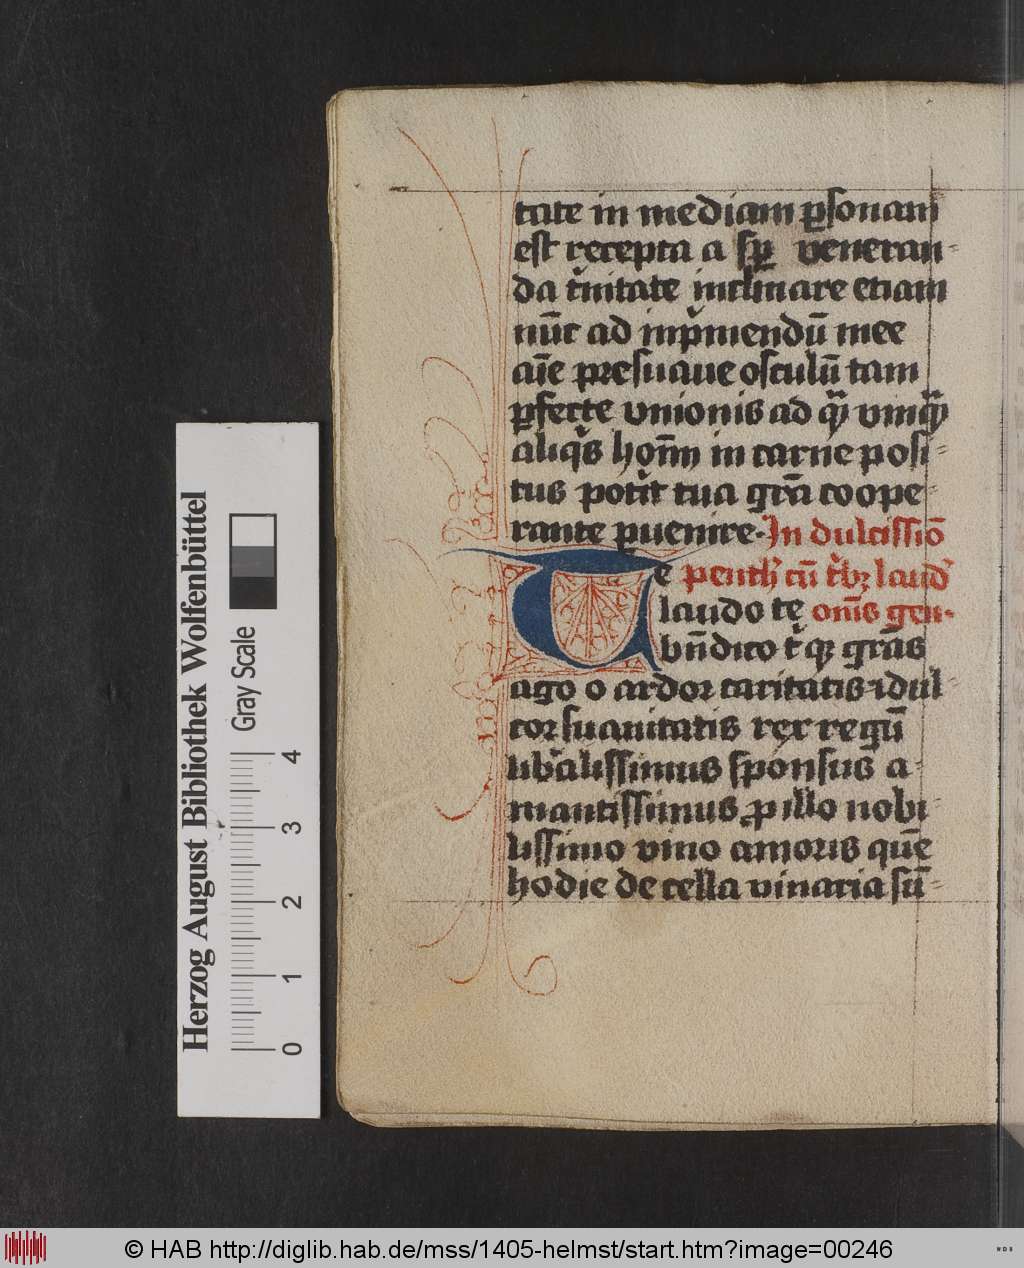 tate in mediam ꝑsonam
est recepta a sp̄ veneran-
da tͥnitate inclinare etiam
nūc ad inpͥmendū mee
aīe presuaue osculū tam
ꝑfecte vnionis ad qͣ vmqͣ
aliqͥs hom̄ in carne posi-
tus potͥt tua gr̄a coope-
rante ꝑuenire. In dulcissīo
Te pentħ cū tͥbꝫ laud̾
laudo te om̄s gen.
bn̄dico tͥqꝫ gr̄as
ago o ardor caritatis ⁊ dul-
cor suauitatis rex regū
libͬalissimus sponsus a-
mantissimus ꝓ illo nobi-
lissimo vino amoris quē
hodie de cella vinaria sū-
Herzog August Bibliothek Wolfenbüttel
Gray Scale
0 1 2 3 4
© HAB http://diglib.hab.de/mss/1405-helmst/start.htm?image=00246